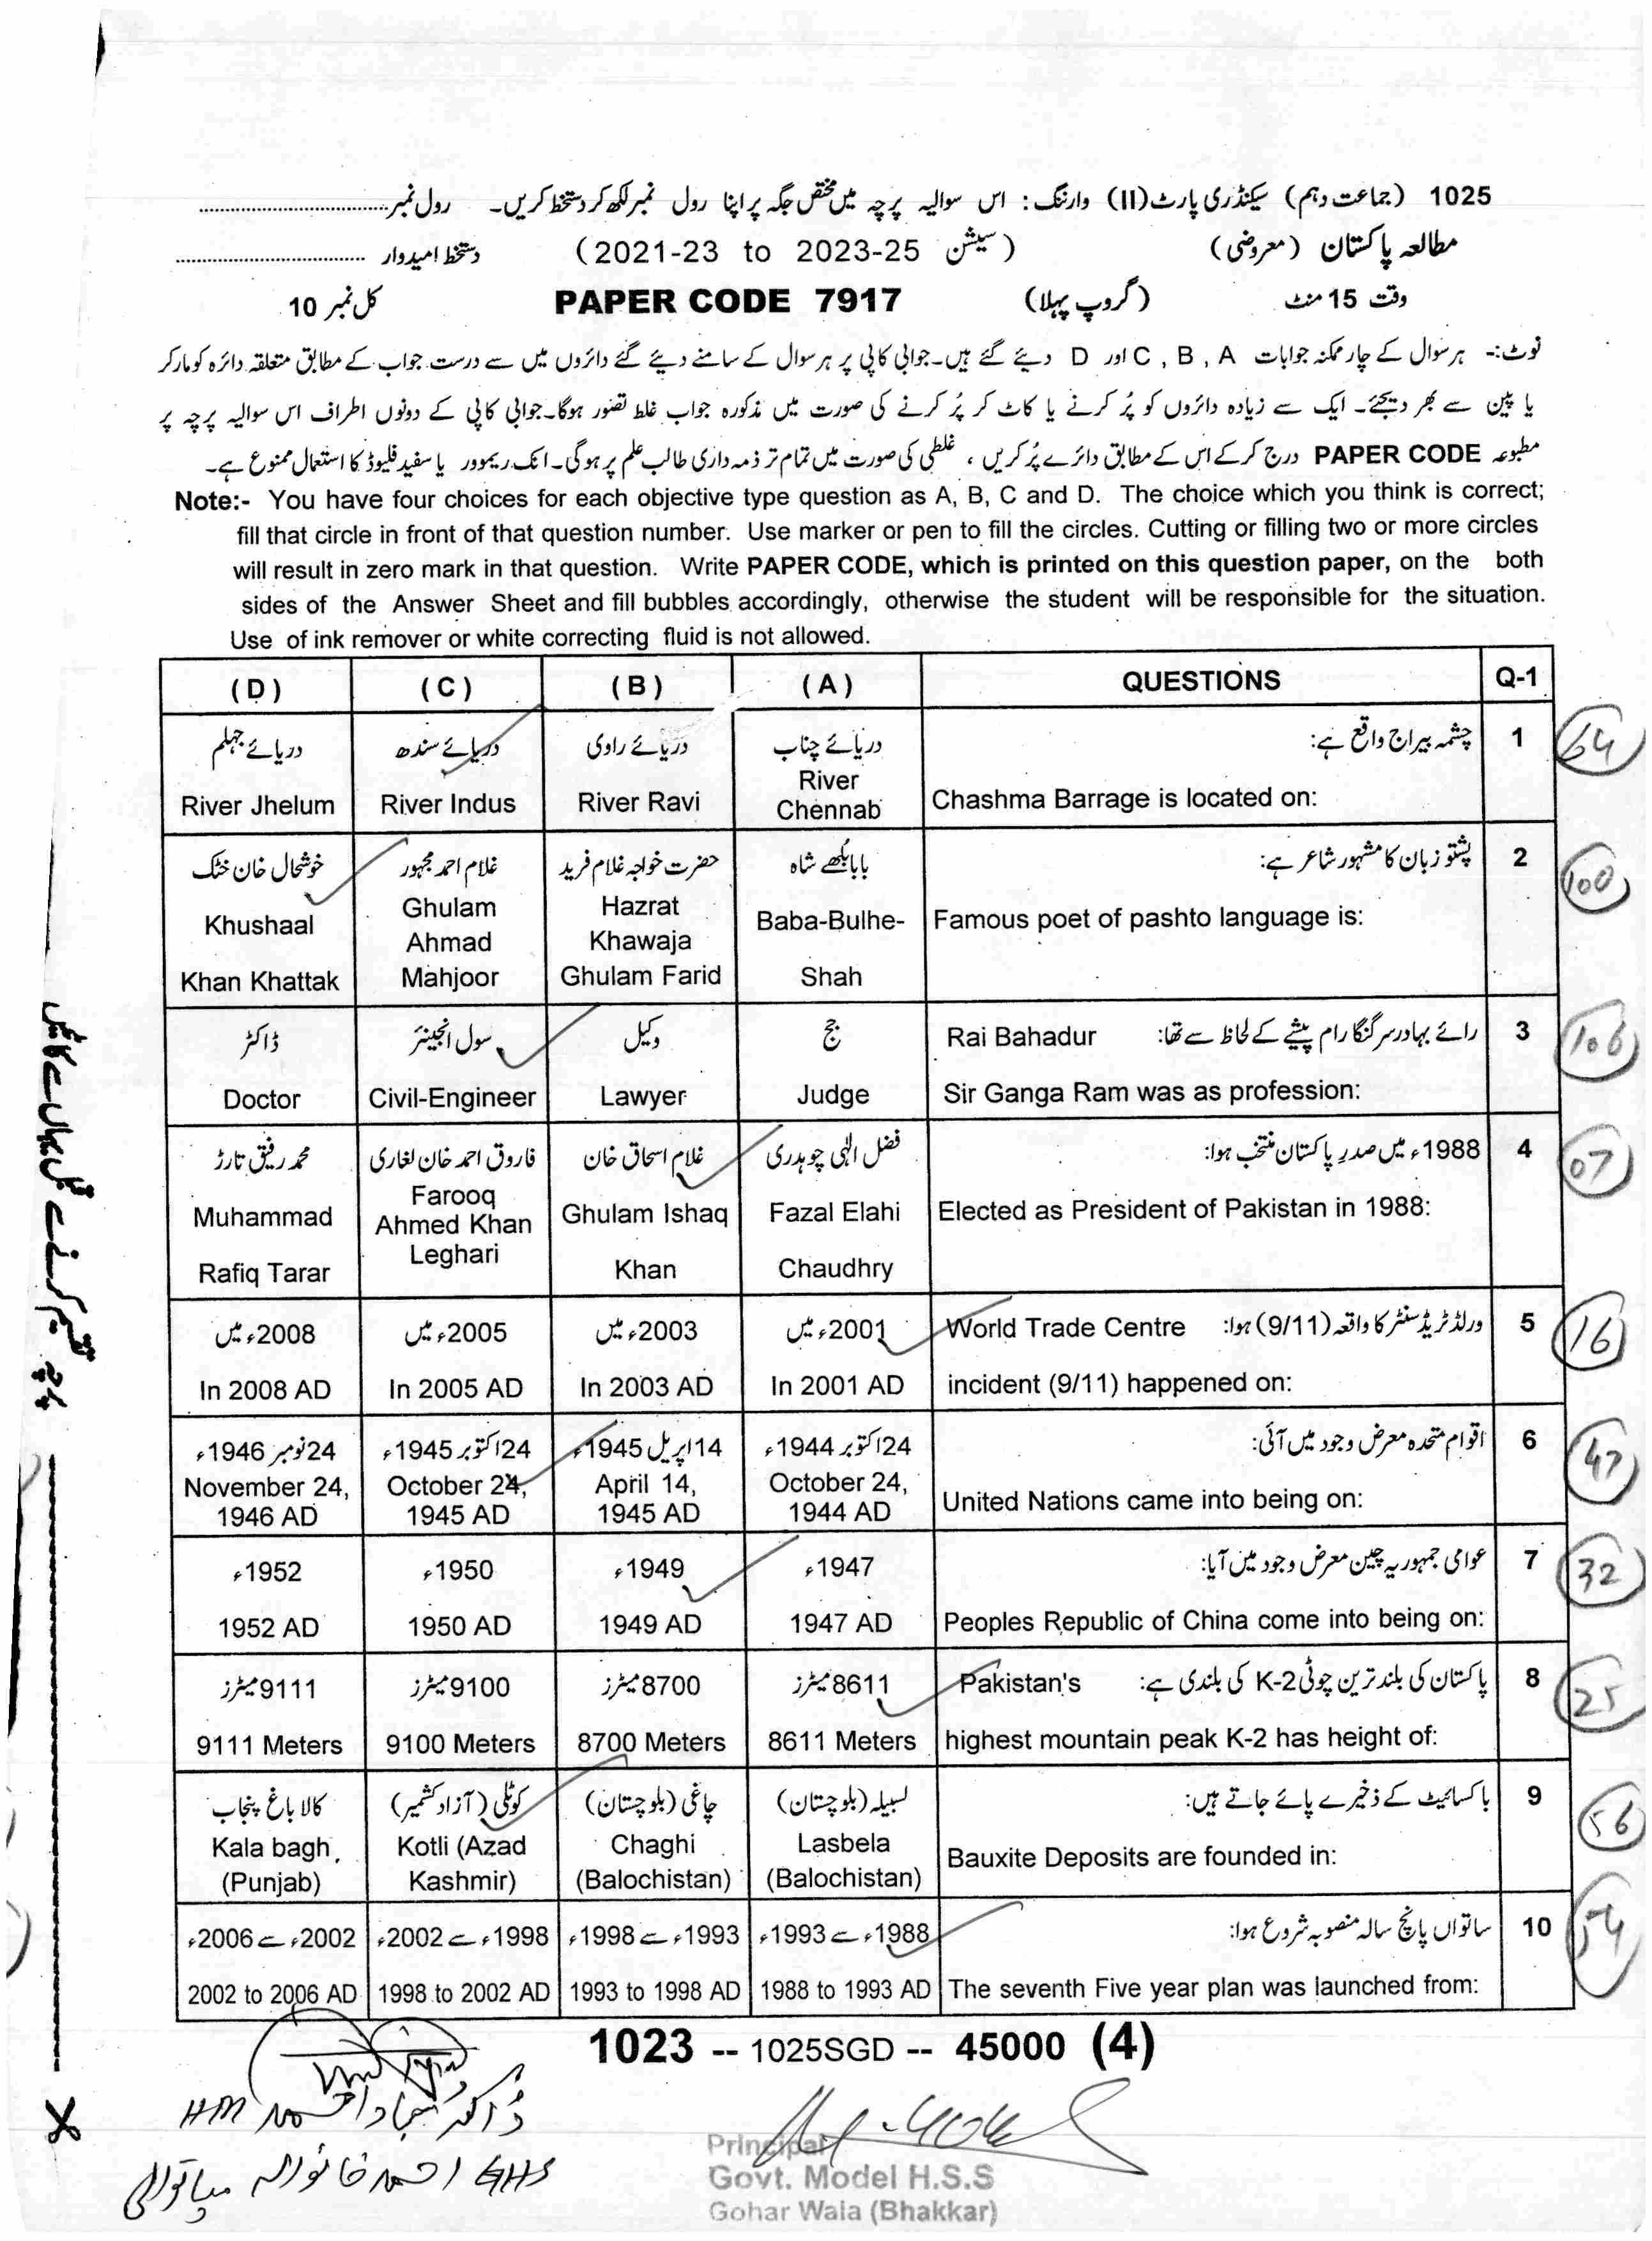 1025 (جماعت دہم) سیکنڈری پارٹ (II) وارننگ: اس سوالیہ پرچہ میں مختص جگہ پر اپنا رول نمبر لکھ کر دستخط کریں۔ رول نمبر
مطالعہ پاکستان (معروضی) (سیشن 2021-23 to 2023-25) دستخط امیدوار
وقت 15 منٹ (گروپ پہلا) PAPER CODE 7917 کل نمبر 10
نوٹ:- ہر سوال کے چار ممکنہ جوابات A , B , C اور D دیئے گئے ہیں۔ جوابی کاپی پر ہر سوال کے سامنے دیئے گئے دائروں میں سے درست جواب کے مطابق متعلقہ دائرہ کو مارکر
یا پین سے بھر دیجئے۔ ایک سے زیادہ دائروں کو پُر کرنے یا کاٹ کر پُر کرنے کی صورت میں مذکورہ جواب غلط تصور ہوگا۔ جوابی کاپی کے دونوں اطراف اس سوالیہ پرچہ پر
مطبوعہ PAPER CODE درج کر کے اس کے مطابق دائرے پُر کریں، غلطی کی صورت میں تمام تر ذمہ داری طالب علم پر ہوگی۔ انک ریموور یا سفید فلیوڈ کا استعمال ممنوع ہے۔
Note:- You have four choices for each objective type question as A, B, C and D. The choice which you think is correct;
fill that circle in front of that question number. Use marker or pen to fill the circles. Cutting or filling two or more circles
will result in zero mark in that question. Write PAPER CODE, which is printed on this question paper, on the both
sides of the Answer Sheet and fill bubbles accordingly, otherwise the student will be responsible for the situation.
Use of ink remover or white correcting fluid is not allowed.
(D) (C) (B) (A) QUESTIONS Q-1
دریائے جہلم دریائے سندھ دریائے راوی دریائے چناب چشمہ بیراج واقع ہے: 1 64
River Jhelum River Indus River Ravi River Chennab Chashma Barrage is located on:
خوشحال خان خٹک غلام احمد مجہور حضرت خواجہ غلام فرید بابا بلھے شاہ پشتو زبان کا مشہور شاعر ہے: 2 100
Khushaal Khan Khattak Ghulam Ahmad Mahjoor Hazrat Khawaja Ghulam Farid Baba-Bulhe-Shah Famous poet of pashto language is:
ڈاکٹر سول انجینئر وکیل جج رائے بہادر سر گنگا رام پیشے کے لحاظ سے تھا: 3 106
Doctor Civil-Engineer Lawyer Judge Rai Bahadur Sir Ganga Ram was as profession:
محمد رفیق تارڑ فاروق احمد خان لغاری غلام اسحاق خان فضل الٰہی چوہدری 1988ء میں صدر پاکستان منتخب ہوا: 4 07
Muhammad Rafiq Tarar Farooq Ahmed Khan Leghari Ghulam Ishaq Khan Fazal Elahi Chaudhry Elected as President of Pakistan in 1988:
2008ء میں 2005ء میں 2003ء میں 2001ء میں ورلڈ ٹریڈ سنٹر کا واقعہ (9/11) ہوا: 5 16
In 2008 AD In 2005 AD In 2003 AD In 2001 AD World Trade Centre incident (9/11) happened on:
24 نومبر 1946ء 24 اکتوبر 1945ء 14 اپریل 1945ء 24 اکتوبر 1944ء اقوام متحدہ معرض وجود میں آئی: 6 47
November 24, 1946 AD October 24, 1945 AD April 14, 1945 AD October 24, 1944 AD United Nations came into being on:
1952ء 1950ء 1949ء 1947ء عوامی جمہوریہ چین معرض وجود میں آیا: 7 32
1952 AD 1950 AD 1949 AD 1947 AD Peoples Republic of China come into being on:
9111 میٹرز 9100 میٹرز 8700 میٹرز 8611 میٹرز پاکستان کی بلند ترین چوٹی K-2 کی بلندی ہے: 8 25
9111 Meters 9100 Meters 8700 Meters 8611 Meters Pakistan's highest mountain peak K-2 has height of:
کالا باغ پنجاب کوٹلی (آزاد کشمیر) چاغی (بلوچستان) لسبیلہ (بلوچستان) باکسائیٹ کے ذخیرے پائے جاتے ہیں: 9 56
Kala bagh (Punjab) Kotli (Azad Kashmir) Chaghi (Balochistan) Lasbela (Balochistan) Bauxite Deposits are founded in:
2002ء سے 2006ء 1998ء سے 2002ء 1993ء سے 1998ء 1988ء سے 1993ء ساتواں پانچ سالہ منصوبہ شروع ہوا: 10 54
2002 to 2006 AD 1998 to 2002 AD 1993 to 1998 AD 1988 to 1993 AD The seventh Five year plan was launched from:
1023 -- 1025SGD -- 45000 (4)
HM
GHS احمد خانوالہ میانوالی
Principal
Govt. Model H.S.S
Gohar Wala (Bhakkar)
پرچہ تقسیم کرنے سے قبل یہاں سے کاٹیں